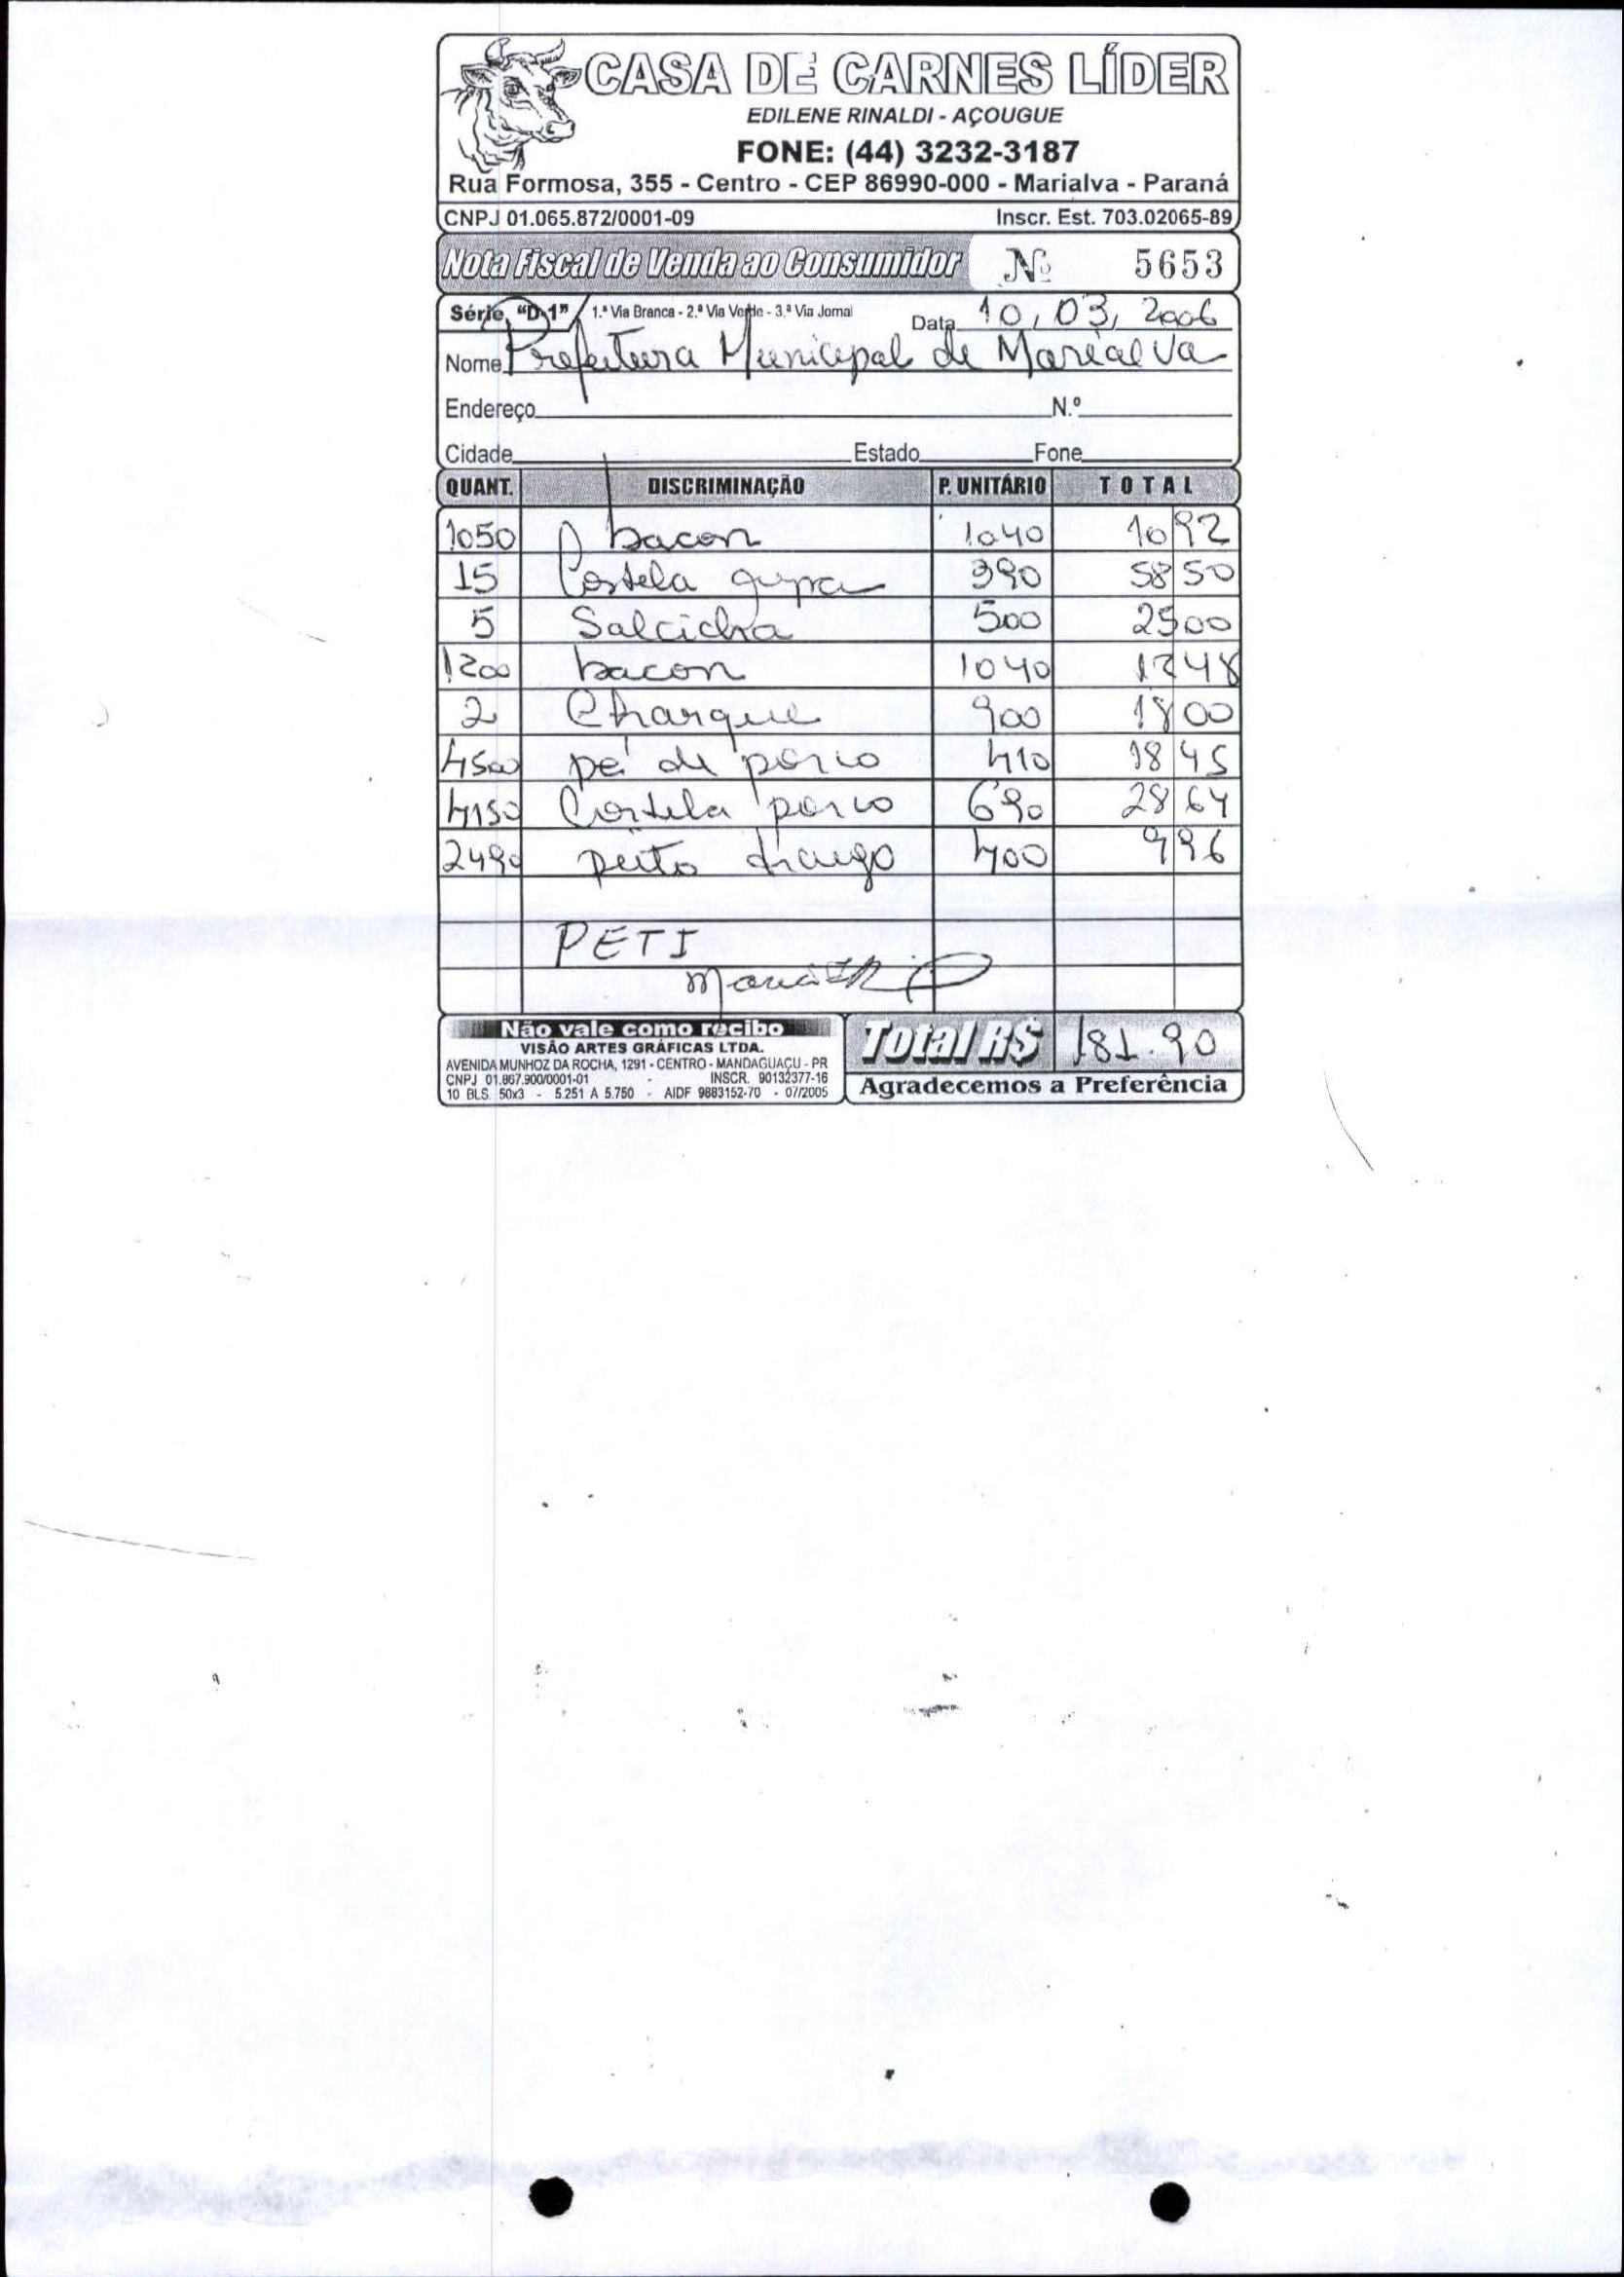 CASA DE CARNES LÍDER
EDILENE RINALDI - AÇOUGUE
FONE: (44) 3232-3187
Rua Formosa, 355 - Centro - CEP 86990-000 - Marialva - Paraná
CNPJ 01.065.872/0001-09 Inscr. Est. 703.02065-89
Nota Fiscal de Venda ao Consumidor Nº 5653
Série "D-1" 1.ª Via Branca - 2.ª Via Verde - 3.ª Via Jornal Data 10, 03, 2006
Nome Prefeitura Municipal de Marialva
Endereço N.º
Cidade Estado Fone
QUANT. DISCRIMINAÇÃO P. UNITÁRIO TOTAL
1050 bacon 1040 10 92
15 Costela 390 58 50
5 Salcicha 500 25 00
1200 bacon 1040 12 48
2 Charque 900 18 00
4500 pé de porco 410 18 45
4150 Costela porco 690 28 64
2490 peito frango 400 9 96
PETI
Não vale como recibo
VISÃO ARTES GRÁFICAS LTDA.
AVENIDA MUNHOZ DA ROCHA, 1291 - CENTRO - MANDAGUAÇU - PR
CNPJ 01.867.900/0001-01 - INSCR. 90132377-16
10 BLS. 50x3 - 5.251 A 5.750 - AIDF 9883152-70 - 07/2005
Total R$ 181.90
Agradecemos a Preferência